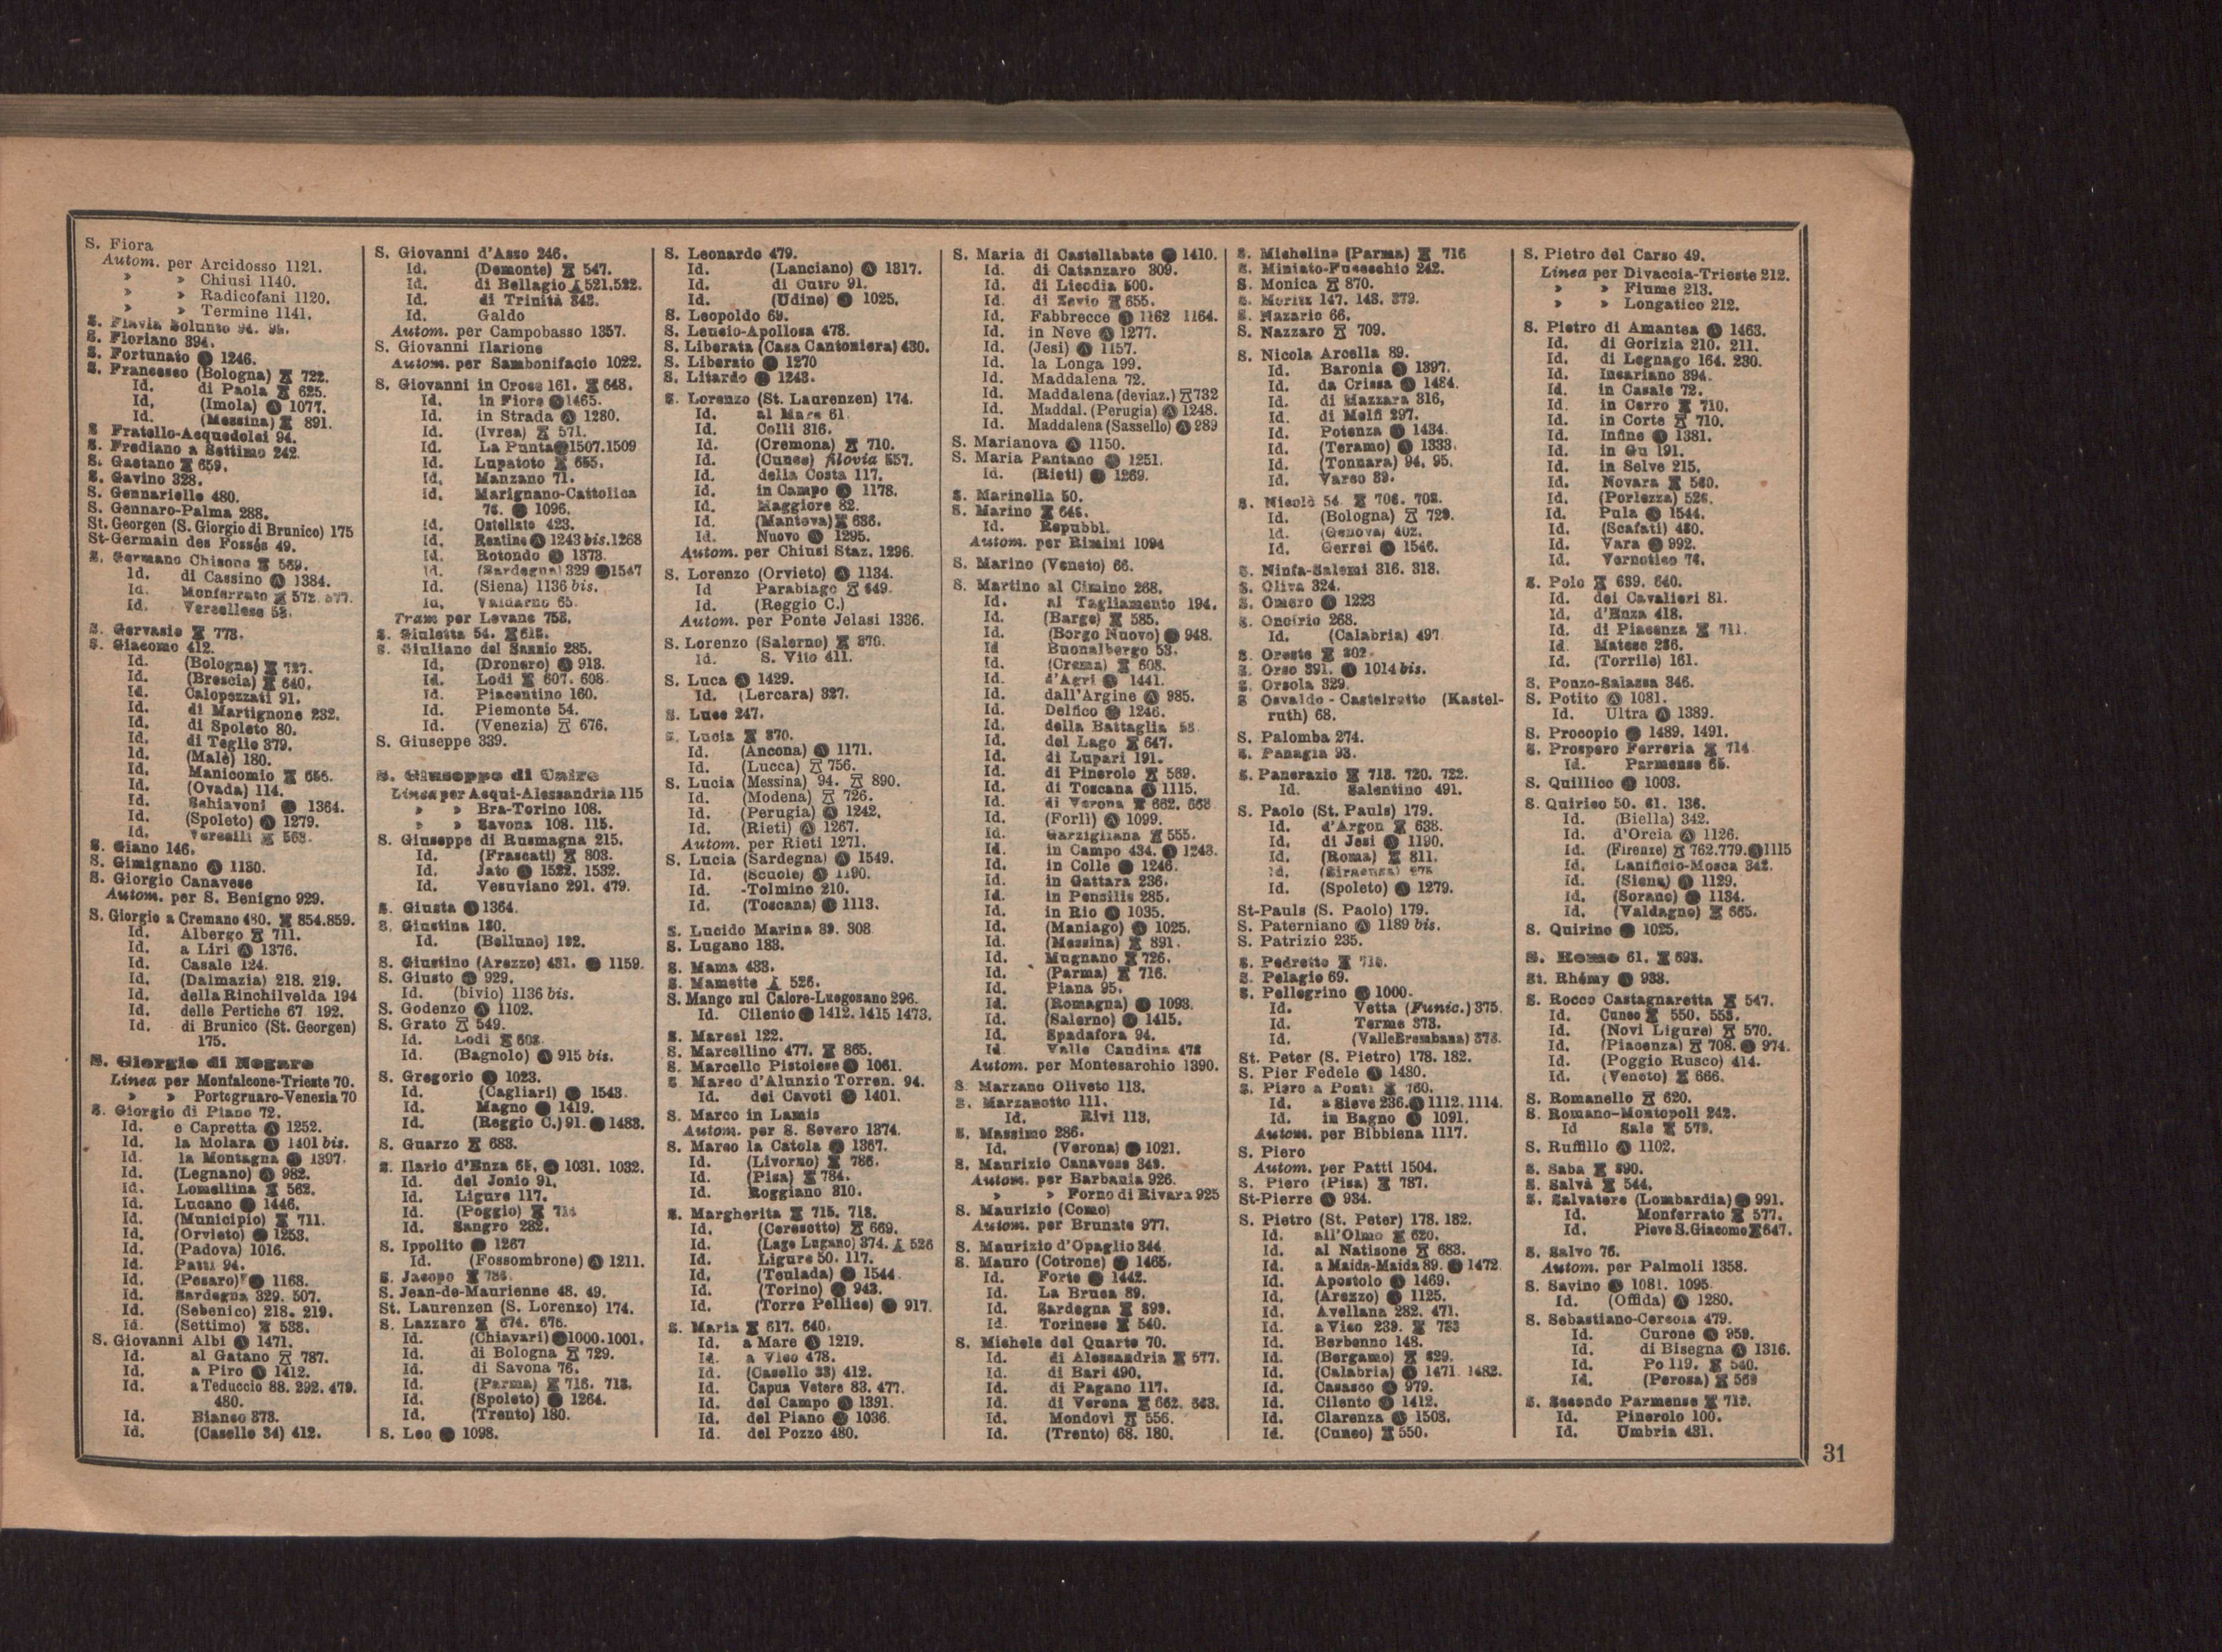 S. Fiora
Autom. per Arcidosso 1121.
» » Chiusi 1140.
» » Radicofani 1120.
» » Termine 1141.
S. Flavia Solunto 94. 95.
S. Floriano 394.
S. Fortunato Ⓐ 1246.
S. Francesco (Bologna) 722.
Id. di Paola 625.
Id. (Imola) Ⓐ 1077.
Id. (Messina) 891.
S. Fratello-Acquedolci 94.
S. Frediano a Settimo 242.
S. Gaetano 659.
S. Gavino 328.
S. Gennariello 480.
S. Gennaro-Palma 288.
St. Georgen (S. Giorgio di Brunico) 175
St-Germain des Fossés 49.
S. Germano Chisone 569.
Id. di Cassino Ⓐ 1384.
Id. Monferrato 572. 577.
Id. Vercellese 53.
S. Gervasio 773.
S. Giacomo 412.
Id. (Bologna) 727.
Id. (Brescia) 640.
Id. Calopezzati 91.
Id. di Martignone 232.
Id. di Spoleto 80.
Id. di Teglio 379.
Id. (Malè) 180.
Id. Manicomio 656.
Id. (Ovada) 114.
Id. Schiavoni Ⓐ 1364.
Id. (Spoleto) Ⓐ 1279.
Id. Vercelli 563.
S. Giano 146.
S. Gimignano Ⓐ 1130.
S. Giorgio Canavese
Autom. per S. Benigno 929.
S. Giorgio a Cremano 480. 854.859.
Id. Albergo 711.
Id. a Liri Ⓐ 1376.
Id. Casale 124.
Id. (Dalmazia) 218. 219.
Id. della Rinchilvelda 194
Id. delle Pertiche 67. 192.
Id. di Brunico (St. Georgen)
175.
S. Giorgio di Nogaro
Linea per Monfalcone-Trieste 70.
» » Portogruaro-Venezia 70
S. Giorgio di Piano 72.
Id. e Capretta Ⓐ 1252.
Id. la Molara Ⓐ 1401 bis.
Id. la Montagna Ⓐ 1397.
Id. (Legnano) Ⓐ 982.
Id. Lomellina 562.
Id. Lucano Ⓐ 1446.
Id. (Municipio) 711.
Id. (Orvieto) Ⓐ 1253.
Id. (Padova) 1016.
Id. Patti 94.
Id. (Pesaro) Ⓐ 1168.
Id. Sardegna 329. 507.
Id. (Sebenico) 218. 219.
Id. (Settimo) 538.
S. Giovanni Albi Ⓐ 1471.
Id. al Gatano 787.
Id. a Piro Ⓐ 1412.
Id. a Teduccio 88. 292. 479.
480.
Id. Bianco 373.
Id. (Casello 34) 412.
S. Giovanni d'Asso 246.
Id. (Demonte) 547.
Id. di Bellagio 521.522.
Id. di Trinità 343.
Id. Galdo
Autom. per Campobasso 1357.
S. Giovanni Ilarione
Autom. per Sambonifacio 1022.
S. Giovanni in Croce 161. 648.
Id. in Fiore Ⓐ 1465.
Id. in Strada Ⓐ 1280.
Id. (Ivrea) 571.
Id. La Punta Ⓐ 1507.1509
Id. Lupatoto 655.
Id. Manzano 71.
Id. Marignano-Cattolica
76. Ⓐ 1096.
Id. Ostellato 423.
Id. Reatino Ⓐ 1243 bis. 1268
Id. Rotondo Ⓐ 1373.
Id. (Sardegna) 329 Ⓐ 1547
Id. (Siena) 1136 bis.
Id. Valdarno 65.
Tram per Levane 758.
S. Giuletta 54.
S. Giuliano del Sannio 285.
Id. (Dronero) Ⓐ 913.
Id. Lodi 607. 608.
Id. Piacentino 160.
Id. Piemonte 54.
Id. (Venezia) 676.
S. Giuseppe 339.
S. Giuseppe di Cairo
Linea per Acqui-Alessandria 115
» » Bra-Torino 108.
» » Savona 108. 115.
S. Giuseppe di Rusmagna 215.
Id. (Frascati) 803.
Id. Jato Ⓐ 1522. 1532.
Id. Vesuviano 291. 479.
S. Giusta Ⓐ 1364.
S. Giustina 180.
Id. (Belluno) 192.
S. Giustino (Arezzo) 431. Ⓐ 1159.
S. Giusto Ⓐ 929.
Id. (bivio) 1136 bis.
S. Godenzo Ⓐ 1102.
S. Grato 549.
Id. Lodi 608.
Id. (Bagnolo) Ⓐ 915 bis.
S. Gregorio Ⓐ 1023.
Id. (Cagliari) Ⓐ 1543.
Id. Magno Ⓐ 1419.
Id. (Reggio C.) 91. Ⓐ 1483.
S. Guarzo 683.
S. Ilario d'Enza 65. Ⓐ 1031. 1032.
Id. del Jonio 91.
Id. Ligure 117.
Id. (Poggio)
Id. Sangro 282.
S. Ippolito Ⓐ 1267
Id. (Fossombrone) Ⓐ 1211.
S. Jacopo 786.
S. Jean-de-Maurienne 48. 49.
St. Laurenzen (S. Lorenzo) 174.
S. Lazzaro 674. 676.
Id. (Chiavari) Ⓐ 1000.1001.
Id. di Bologna 729.
Id. di Savona 76.
Id. (Parma) 716. 718.
Id. (Spoleto) Ⓐ 1264.
Id. (Trento) 180.
S. Leo Ⓐ 1098.
S. Leonardo 479.
Id. (Lanciano) Ⓐ 1317.
Id. di Cutro 91.
Id. (Udine) Ⓐ 1025.
S. Leopoldo 69.
S. Leucio-Apollosa 478.
S. Liberata (Casa Cantoniera) 430.
S. Liberato Ⓐ 1270
S. Litardo Ⓐ 1243.
S. Lorenzo (St. Laurenzen) 174.
Id. al Mare 61.
Id. Colli 316.
Id. (Cremona) 710.
Id. (Cuneo) filovia 557.
Id. della Costa 117.
Id. in Campo Ⓐ 1178.
Id. Maggiore 82.
Id. (Mantova) 636.
Id. Nuovo Ⓐ 1295.
Autom. per Chiusi Staz. 1296.
S. Lorenzo (Orvieto) Ⓐ 1134.
Id Parabiago 649.
Id. (Reggio C.)
Autom. per Ponte Jelasi 1336.
S. Lorenzo (Salerno) 870.
Id. S. Vito 411.
S. Luca Ⓐ 1429.
Id. (Lercara) 327.
S. Luce 247.
S. Lucia 870.
Id. (Ancona) Ⓐ 1171.
Id. (Lucca) 756.
S. Lucia (Messina) 94. 890.
Id. (Modena) 726.
Id. (Perugia) Ⓐ 1242.
Id. (Rieti) Ⓐ 1267.
Autom. per Rieti 1271.
S. Lucia (Sardegna) Ⓐ 1549.
Id. (Scuole) Ⓐ 1190.
Id. -Tolmino 210.
Id. (Toscana) Ⓐ 1113.
S. Lucido Marina 89. 308
S. Lugano 183.
S. Mama 433.
S. Mamette 526.
S. Mango sul Calore-Luogosano 296.
Id. Cilento Ⓐ 1412. 1415 1473.
S. Marcel 122.
S. Marcellino 477. 865.
S. Marcello Pistoiese Ⓐ 1061.
S. Marco d'Alunzio Torren. 94.
Id. dei Cavoti Ⓐ 1401.
S. Marco in Lamis
Autom. per S. Severo 1374.
S. Marco la Catola Ⓐ 1367.
Id. (Livorno) 786.
Id. (Pisa) 784.
Id. Roggiano 310.
S. Margherita 715. 718.
Id. (Ceresetto) 669.
Id. (Lago Lugano) 374. 526
Id. Ligure 50. 117.
Id. (Teulada) Ⓐ 1544.
Id. (Torino) Ⓐ 943.
Id. (Torre Pellice) Ⓐ 917.
S. Maria 617. 640.
Id. a Mare Ⓐ 1219.
Id. a Vico 478.
Id. (Casello 33) 412.
Id. Capua Vetere 83. 477.
Id. del Campo Ⓐ 1391.
Id. del Piano Ⓐ 1036.
Id. del Pozzo 480.
S. Maria di Castellabate Ⓐ 1410.
Id. di Catanzaro 309.
Id. di Licodia 500.
Id. di Zevio 655.
Id. Fabbrecce Ⓐ 1162 1164.
Id. in Neve Ⓐ 1277.
Id. (Jesi) Ⓐ 1157.
Id. la Longa 199.
Id. Maddalena 72.
Id. Maddalena (deviaz.) 732
Id. Maddal. (Perugia) Ⓐ 1248.
Id. Maddalena (Sassello) Ⓐ 989
S. Marianova Ⓐ 1150.
S. Maria Pantano Ⓐ 1251.
Id. (Rieti) Ⓐ 1269.
S. Marinella 50.
S. Marino 646.
Id. Repubbl.
Autom. per Rimini 1094
S. Marino (Veneto) 66.
S. Martino al Cimino 268.
Id. al Tagliamento 194.
Id. (Barge) 585.
Id. (Borgo Nuovo) Ⓐ 948.
Id Buonalbergo 53.
Id. (Crema) 608.
Id. d'Agri Ⓐ 1441.
Id. dall'Argine Ⓐ 985.
Id. Delfico Ⓐ 1246.
Id. della Battaglia 53
Id. del Lago 647.
Id. di Lupari 191.
Id. di Pinerolo 569.
Id. di Toscana Ⓐ 1115.
Id. di Verona 662. 663
Id. (Forlì) Ⓐ 1099.
Id. Garzigliana 555.
Id. in Campo 434. Ⓐ 1243.
Id. in Colle Ⓐ 1246.
Id. in Gattara 236.
Id. in Pensilis 285.
Id. in Rio Ⓐ 1035.
Id. (Maniago) Ⓐ 1025.
Id. (Messina) 891.
Id. Mugnano 726.
Id. (Parma) 716.
Id. Piana 95.
Id. (Romagna) Ⓐ 1093.
Id. (Salerno) Ⓐ 1415.
Id. Spadafora 94.
Id. Valle Caudina 478
Autom. per Montesarchio 1390.
S. Marzano Oliveto 113.
S. Marzanotto 111.
Id. Rivi 113.
S. Massimo 286.
Id. (Verona) Ⓐ 1021.
S. Maurizio Canavese 343.
Autom. per Barbania 926.
» » Forno di Rivara 925
S. Maurizio (Como)
Autom. per Brunate 977.
S. Maurizio d'Opaglio 344
S. Mauro (Cotrone) Ⓐ 1465.
Id. Forte Ⓐ 1442.
Id. La Bruca 89.
Id. Sardegna 893.
Id. Torinese 540.
S. Michele del Quarto 70.
Id. di Alessandria 577.
Id. di Bari 490.
Id. di Pagano 117.
Id. di Verona 662. 663.
Id. Mondovì 556.
Id. (Trento) 68. 180.
S. Michelino (Parma) 716
S. Miniato-Fucecchio 242.
S. Monica 870.
S. Moritz 147. 148. 379.
S. Nazario 66.
S. Nazzaro 709.
S. Nicola Arcella 89.
Id. Baronia Ⓐ 1397.
Id. da Crissa Ⓐ 1484.
Id. di Mazzara 316.
Id. di Melfi 297.
Id. Potenza Ⓐ 1434.
Id. (Teramo) Ⓐ 1333.
Id. (Tonnara) 94. 95.
Id. Varco 89.
S. Nicolò 54. 706. 708.
Id. (Bologna) 729.
Id. (Genova) 402.
Id. Gerrei Ⓐ 1546.
S. Ninfa-Salemi 316. 318.
S. Oliva 324.
S. Omero Ⓐ 1223
S. Onofrio 268.
Id. (Calabria) 497
S. Oreste 802.
S. Orso 391. Ⓐ 1014 bis.
S. Orsola 329.
S Osvaldo-Castelrotto (Kastel-
ruth) 68.
S. Palomba 274.
S. Panagia 93.
S. Pancrazio 718. 720. 722.
Id. Salentino 491.
S. Paolo (St. Pauls) 179.
Id. d'Argon 638.
Id. di Jesi Ⓐ 1190.
Id. (Roma) 811.
Id. (Siracusa)
Id. (Spoleto) Ⓐ 1279.
St-Pauls (S. Paolo) 179.
S. Paterniano Ⓐ 1189 bis.
S. Patrizio 235.
S. Pedretto 710.
S. Pelagio 69.
S. Pellegrino Ⓐ 1000.
Id. Vetta (Funic.) 375.
Id. Terme 373.
Id. (Valle Brembana) 373.
St. Peter (S. Pietro) 178. 182.
S. Pier Fedele Ⓐ 1480.
S. Piero a Ponti 760.
Id. a Sieve 236. Ⓐ 1112. 1114.
Id. in Bagno Ⓐ 1091.
Autom. per Bibbiena 1117.
S. Piero
Autom. per Patti 1504.
S. Piero (Pisa) 787.
St-Pierre Ⓐ 934.
S. Pietro (St. Peter) 178. 182.
Id. all'Olmo 620.
Id. al Natisone 683.
Id. a Maida-Maida 89. Ⓐ 1472
Id. Apostolo Ⓐ 1469.
Id. (Arezzo) Ⓐ 1125.
Id. Avellana 282. 471.
Id. a Vico 239. 753
Id. Berbenno 148.
Id. (Bergamo) 629.
Id. (Calabria) Ⓐ 1471 1482.
Id. Casasco Ⓐ 979.
Id. Cilento Ⓐ 1412.
Id. Clarenza Ⓐ 1508.
Id. (Cuneo) 550.
S. Pietro del Carso 49.
Linea per Divaccia-Trieste 212.
» » Fiume 213.
» » Longatico 212.
S. Pietro di Amantea Ⓐ 1463.
Id. di Gorizia 210. 211.
Id. di Legnago 164. 230.
Id. Incariano 394.
Id. in Casale 72.
Id. in Cerro 710.
Id. in Corte 710.
Id. Infine Ⓐ 1381.
Id. in Gu 191.
Id. in Selve 215.
Id. Novara 560.
Id. (Porlezza) 526.
Id. Pula Ⓐ 1544.
Id. (Scafati) 480.
Id. Vara Ⓐ 992.
Id. Vernotico 76.
S. Polo 639. 640.
Id. dei Cavalieri 81.
Id. d'Enza 418.
Id. di Piacenza 711.
Id. Matese 286.
Id. (Torrile) 161.
S. Ponzo-Salassa 346.
S. Potito Ⓐ 1081.
Id. Ultra Ⓐ 1389.
S. Procopio Ⓐ 1489. 1491.
S. Prospero Ferreria 714
Id. Parmense 65.
S. Quillico Ⓐ 1003.
S. Quirico 50. 61. 136.
Id. (Biella) 342.
Id. d'Orcia Ⓐ 1126.
Id. (Firenze) 762.779. Ⓐ 1115
Id. Lanificio-Mosca 342.
Id. (Siena) Ⓐ 1129.
Id. (Sorano) Ⓐ 1134.
Id. (Valdagno) 665.
S. Quirino Ⓐ 1025.
S. Remo 61. 693.
St. Rhémy Ⓐ 938.
S. Rocco Castagnaretta 547.
Id. Cuneo 550. 553.
Id. (Novi Ligure) 570.
Id. (Piacenza) 708. Ⓐ 974.
Id. (Poggio Rusco) 414.
Id. (Veneto) 666.
S. Romanello 620.
S. Romano-Montopoli 242.
Id Sale 579.
S. Ruffillo Ⓐ 1102.
S. Saba 890.
S. Salvà 544.
S. Salvatore (Lombardia) Ⓐ 991.
Id. Monferrato 577.
Id. Pieve S. Giacomo 647.
S. Salvo 76.
Autom. per Palmoli 1358.
S. Savino Ⓐ 1081. 1095.
Id. (Offida) Ⓐ 1280.
S. Sebastiano-Cercola 479.
Id. Curone Ⓐ 959.
Id. di Bisegna Ⓐ 1316.
Id. Po 119. 540.
Id. (Perosa) 569
S. Secondo Parmense 718.
Id. Pinerolo 100.
Id. Umbria 431.
31